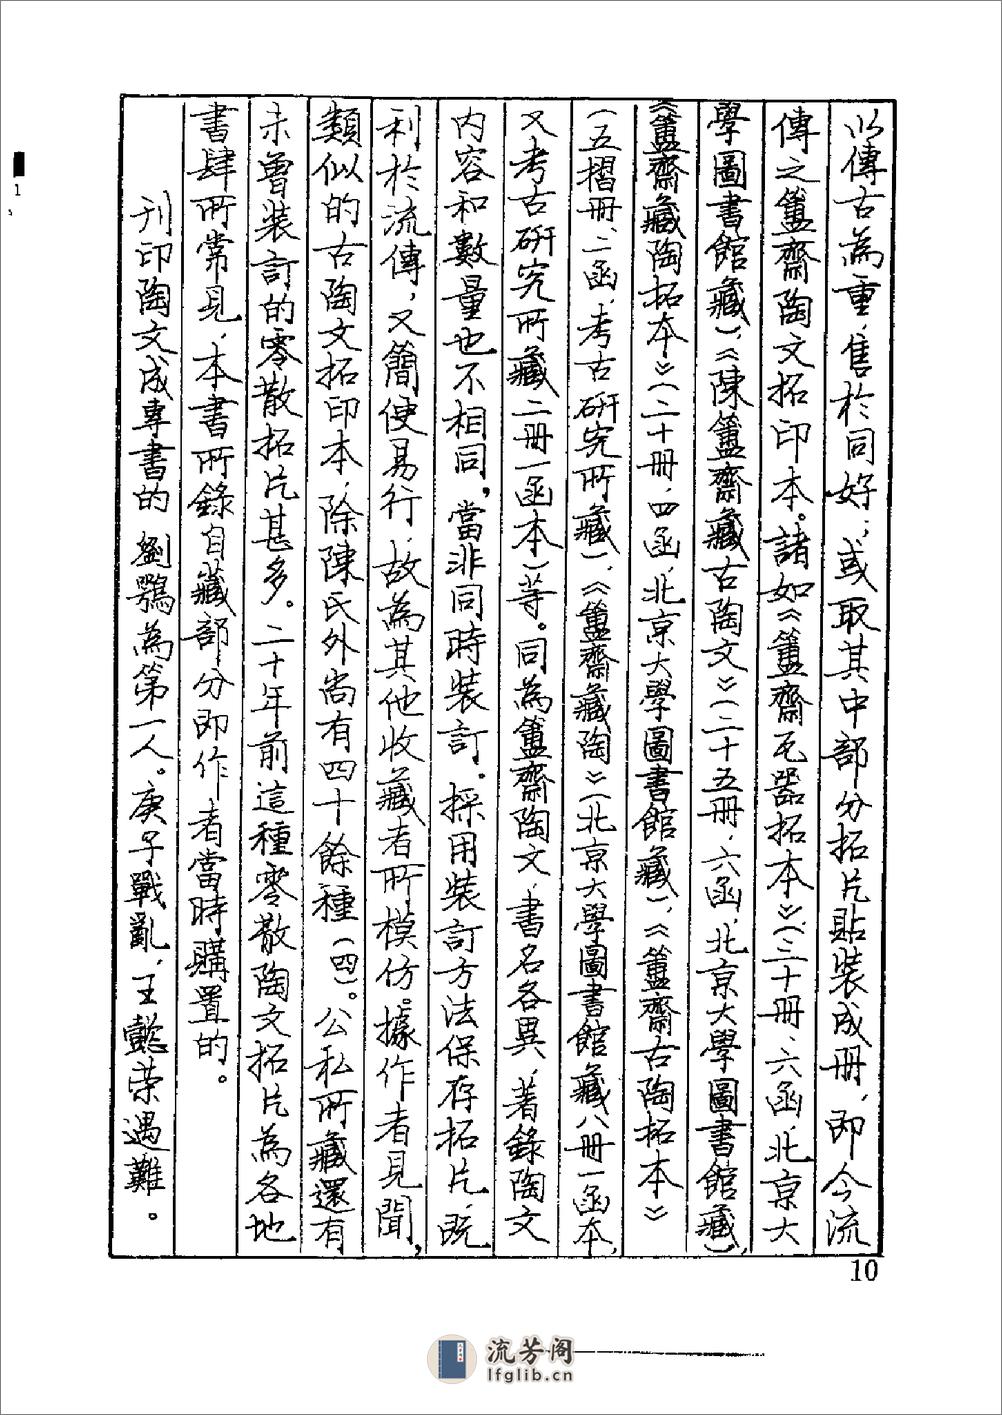 以傳古為重，售於同好；或取其中部分拓片貼裝成冊，即今流
傳之簠齋陶文拓印本。諸如《簠齋瓦器拓本》（三十冊、六函，北京大
學圖書館藏）、《陳簠齋藏古陶文》（二十五冊，六函，北京大學圖書館藏），
《簠齋藏陶拓本》（二十冊，四函，北京大學圖書館藏），《簠齋古陶拓本》
（五摺冊、二函，考古研究所藏）、《簠齋藏陶》（北京大學圖書館藏八冊一函本，
又考古研究所藏二冊一函本）等。同為簠齋陶文，書名各異，著錄陶文
內容和數量也不相同，當非同時裝訂。採用裝訂方法保存拓片，既
利於流傳，又簡便易行，故為其他收藏者所模仿。據作者見聞，
類似的古陶文拓印本，除陳氏外尚有四十餘種（四）。公私所藏還有
未曾裝訂的零散拓片甚多。二十年前這種零散陶文拓片為各地
書肆所常見，本書所錄自藏部分即作者當時購置的。
刊印陶文成專書的，劉鶚為第一人。庚子戰亂，王懿荣遇難。
10
1
流芳阁
lfglib.cn